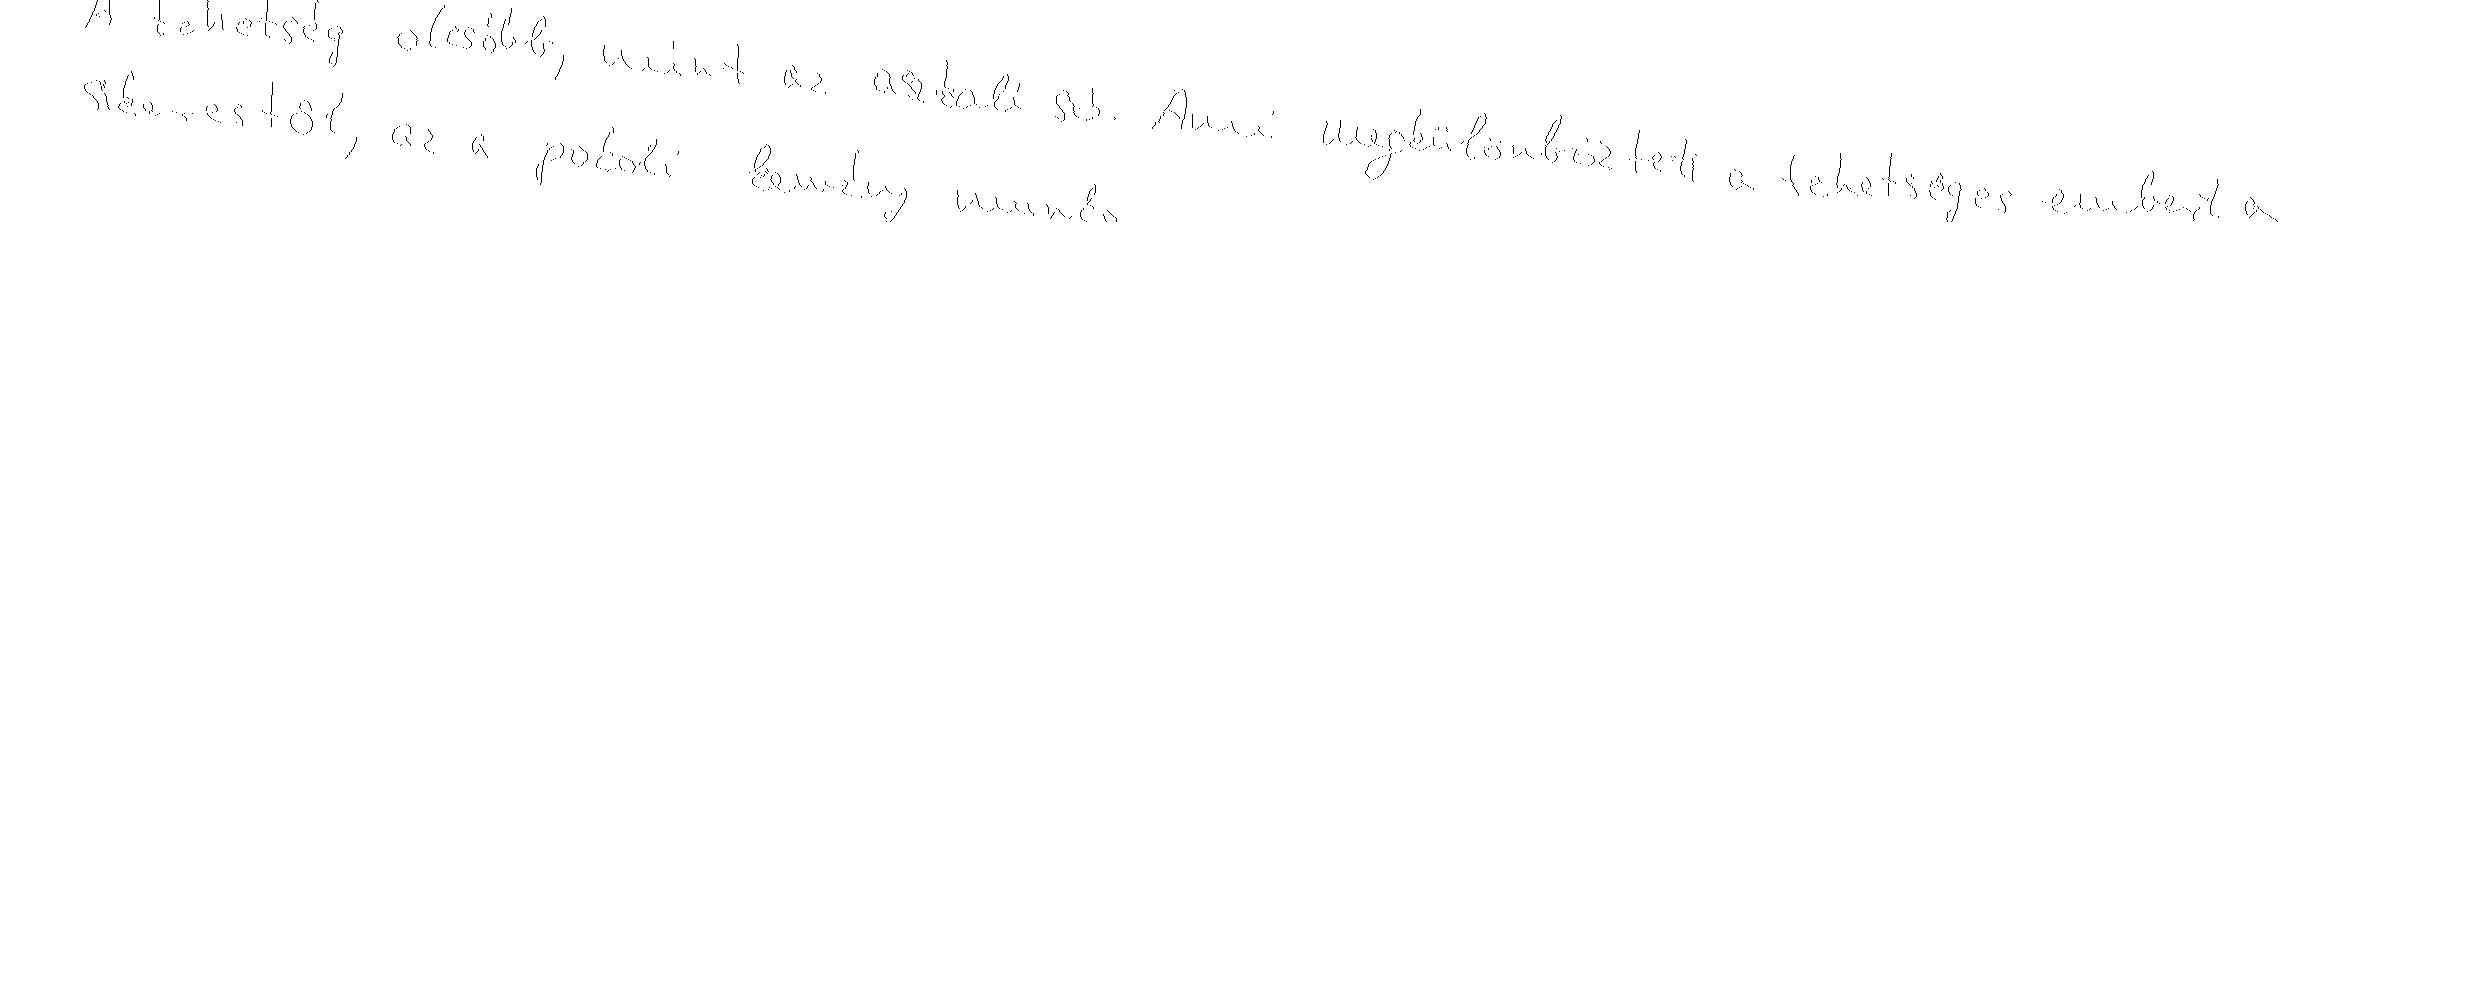 A tehetség olcsóbb, mint az asztali só. Ami megkülönbözteti a tehetséges embert a
sikerestől, az a pokoli kemény munka